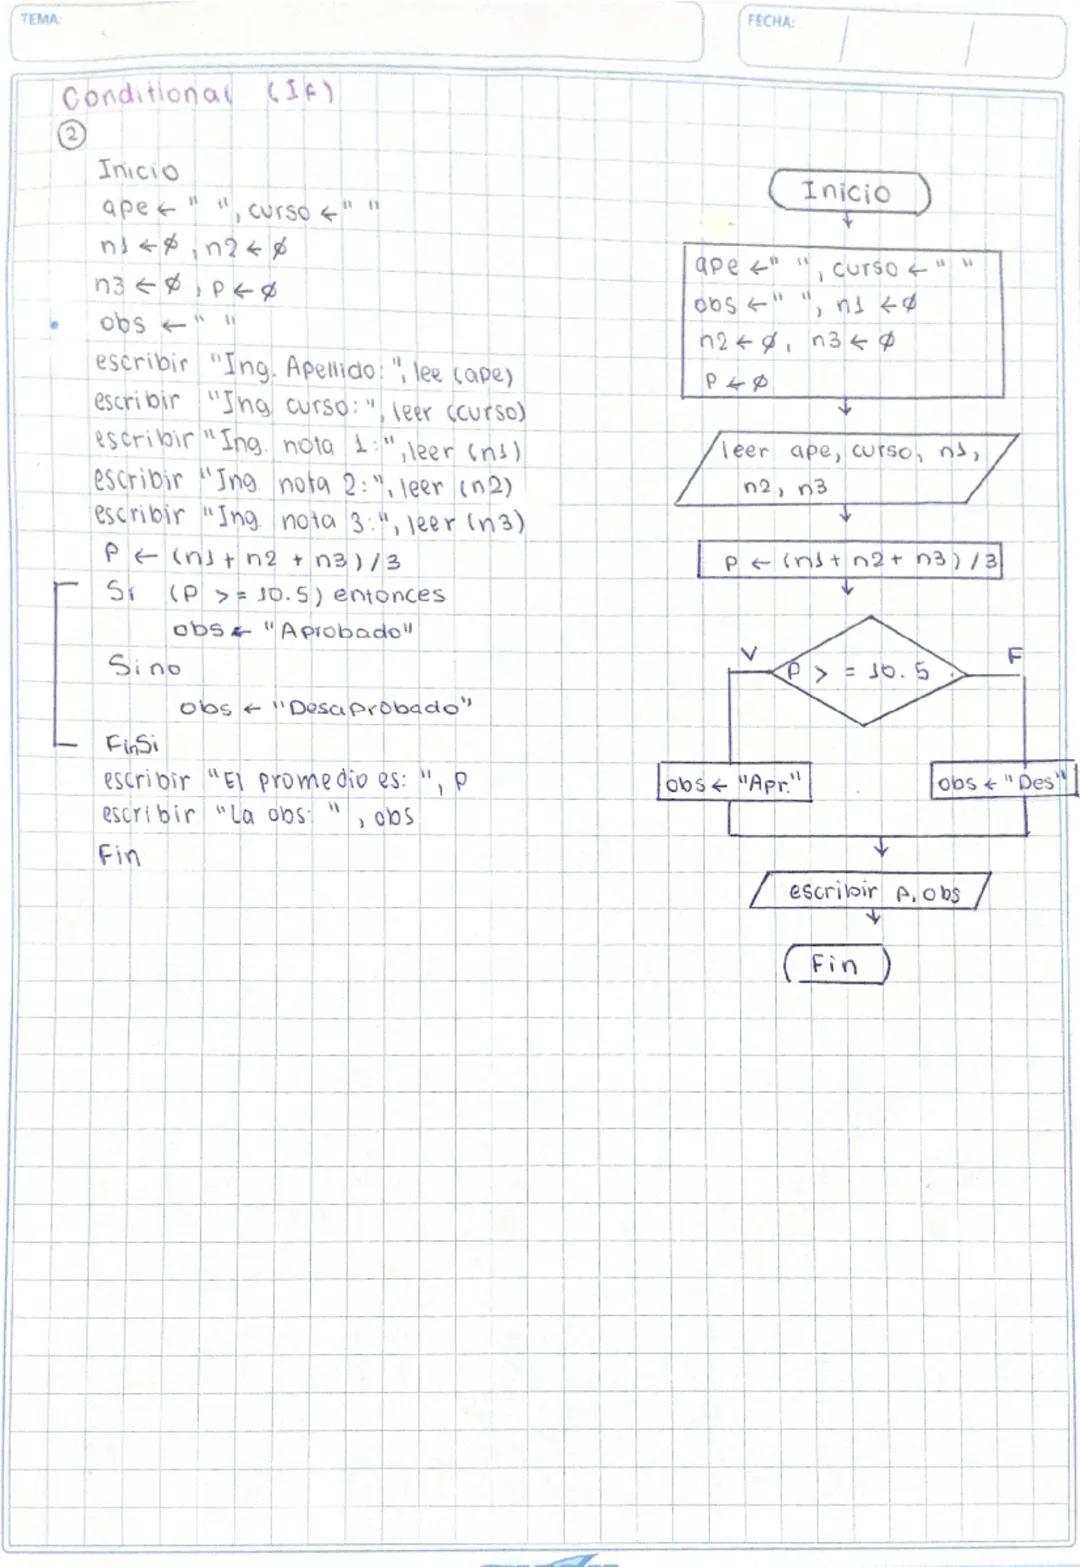 TEMA:
FECHA:
Conditional (If)
2
Inicio
ape ← " ", curso ← " "
n1 ← ∅, n2 ← ∅
n3 ← ∅, P ← ∅
obs ← " "
escribir "Ing. Apellido: ", lee (ape)
escribir "Ing curso: ", leer (curso)
escribir "Ing. nota 1:", leer (n1)
escribir "Ing. nota 2:", leer (n2)
escribir "Ing. nota 3:", leer (n3)
P ← (n1 + n2 + n3) / 3
Si (P >= 10.5) entonces
obs ← "Aprobado"
Sino
obs ← "Desaprobado"
FinSi
escribir "El promedio es: ", P
escribir "La obs: ", obs
Fin
Inicio
ape ← " ", curso ← " "
obs ← " ", n1 ← ∅
n2 ← ∅, n3 ← ∅
P ← ∅
leer ape, curso, n1,
n2, n3
P ← (n1 + n2 + n3) / 3
V
P >= 10.5
F
obs ← "Apr."
obs ← "Des"
escribir P, obs
Fin